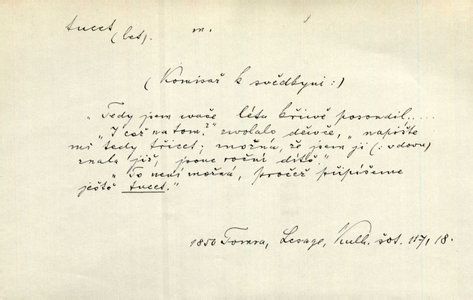 tucet (let). m.
(Komisař k svědkyni:)
„Tedy jsem vaše léta křivě posoudil.....
„I což na tom?" zvolalo děvče, „napište
mi tedy třicet; možná, že jsem ji (: vdovu)
znala již, jsouc roční dítě."
„To není možná, pročež připíšeme
ještě tucet."
1850 Tomsa, Lesage, Kulh. 117, 18.